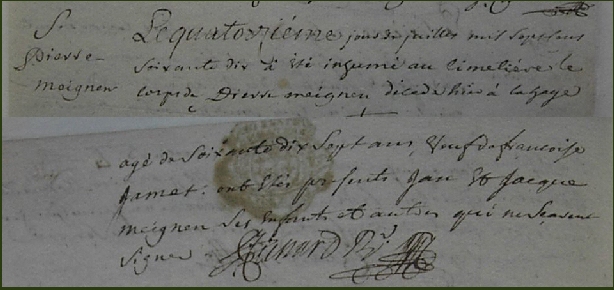 S.
Pierre
meignen
Le quatorziéme jour de juillet mil sept cens
soixante dix à été inhumé au cimetiére le
corps de Pierre meignen décédé hier à
agé de soixante dix sept ans, veuf de francoise
Jamet: ont étés presents Jan et Jacque
meignen ses enfants et autres qui ne scavent
signer